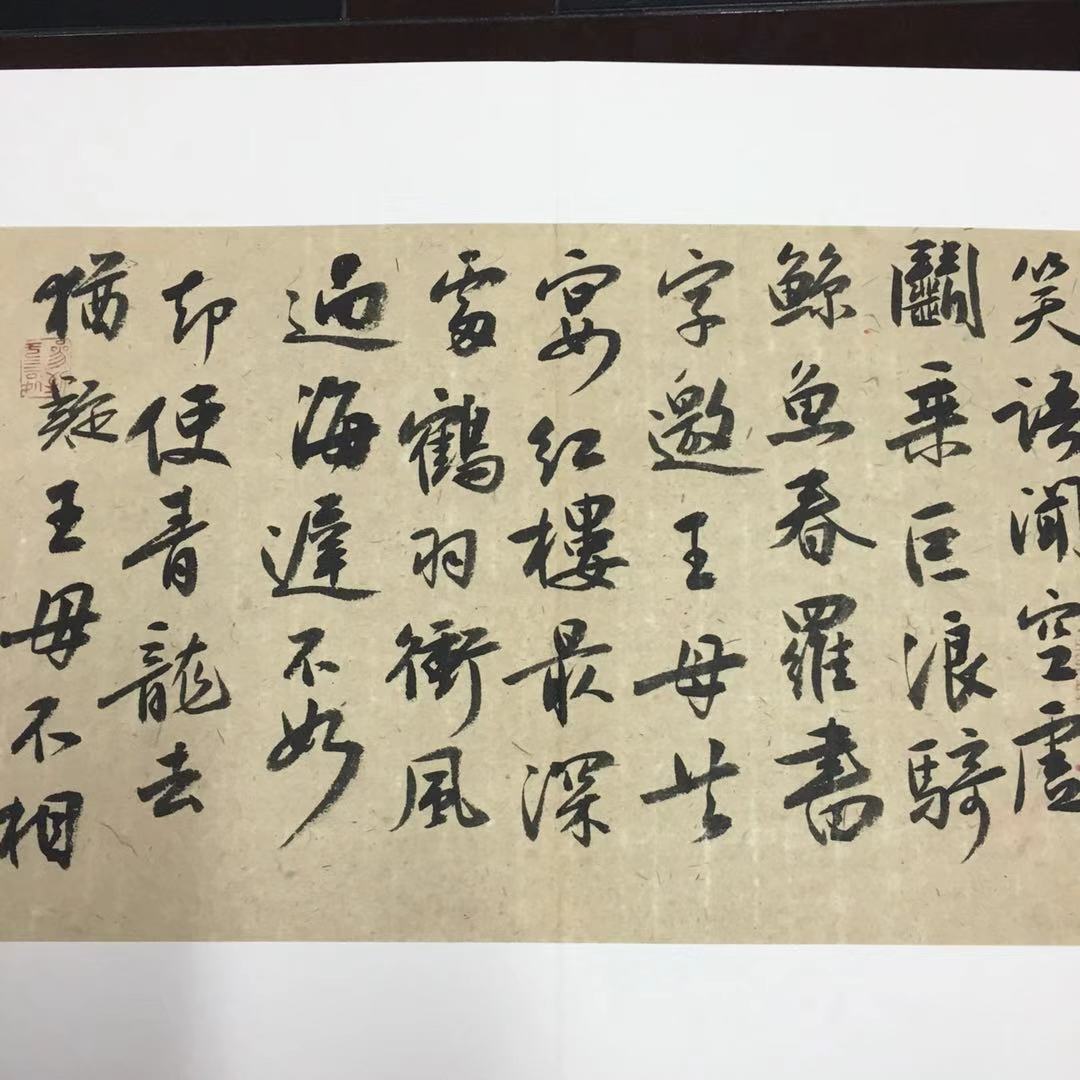 笑語聞空虛
鬭乗巨浪騎
鯨魚春羅書
字邀王母共
宴紅樓最深
處鶴羽衝風
過海遲不如
却使青龍去
猶疑王母不相